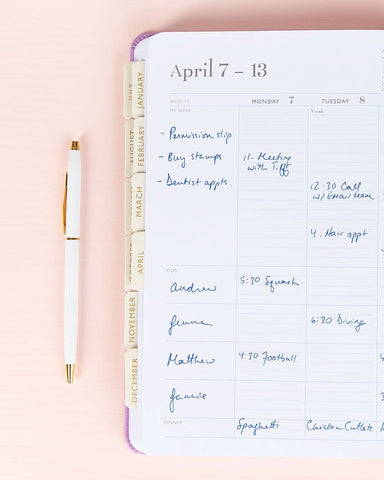 April 7 – 13
WEEK 15
MONDAY 7
TUESDAY 8
MY WEEK
- Permission slip
- Buy stamps
- Dentist appts.
11 - Meeting
with Tiff
12:30 Call
w/ EMEA team
4. Hair appt
KIDS
Andrew
5:30 Squash
6:30 Diving
Matthew
4:30 Football
Jamie
DINNER
Spaghetti
Chicken Cutlets
JULY
JANUARY
AUGUST
FEBRUARY
MARCH
OCTOBER
APRIL
NOVEMBER
DECEMBER